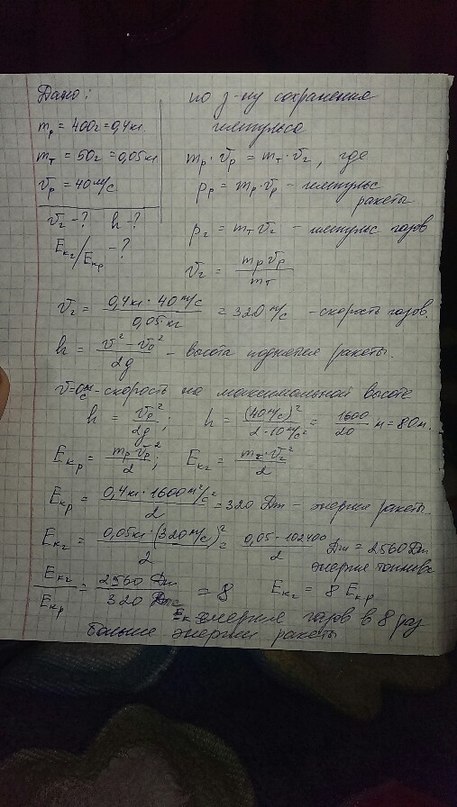 Дано:
mр = 400г = 0,4кг.
mт = 50г = 0,05кг
vр = 40 м/с
vг - ? h - ?
Eкг/Eкр - ?
по з-ну сохранения
импульса
mр · vр = mт · vг, где
pр = mр · vр - импульс
ракеты
pг = mт vг - импульс газов
vг = mр vр / mт
vг = 0,4кг · 40 м/с / 0,05 кг = 320 м/с - скорость газов.
h = v² - v₀² / 2g - высота поднятия ракеты.
v = 0 м/с - скорость на максимальной высоте
h = vр² / 2g; h = (40 м/с)² / 2 · 10 м/с² = 1600 / 20 м = 80 м.
Eкр = mр vр² / 2; Eкг = mт · vг² / 2
Eкр = 0,4кг · 1600 м²/с² / 2 = 320 Дж - энергия ракеты.
Eкг = 0,05кг · (320 м/с)² / 2 = 0,05 · 102400 / 2 Дж = 2560 Дж
энергия топлива
Eкг / Eкр = 2560 Дж / 320 Дж = 8 Eкг = 8 Eкр
энергия газов в 8 раз
больше энергии ракеты